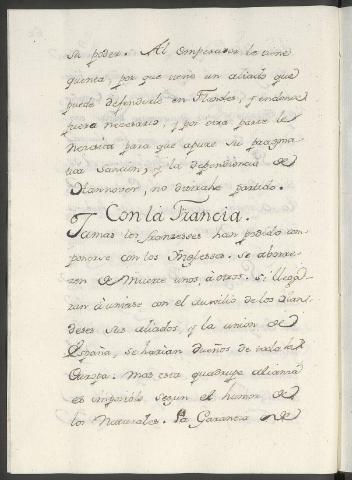 su poder. Al emperador le tiene
quenta, por que tiene un aliado que
puede defenderle en Flandes, y endonde
fuera necesario; y por otra parte le
para que apure su pragma
tica sancion, y la dependiencia de
Hannover, no distrahe partido.
Con la Francia.
Jamas los franzesses han podido com
ponerse con los Inglesses. se aborre
zen de Muerte unos, à otros. si llega
ran à unirse con el auxilio de los olan
deses sus aliados, y la union de
España, se harian dueños de toda la
Europa: mas esta quadruple alianza
es imposible segun el humor de
los Naturales. La Garantia de